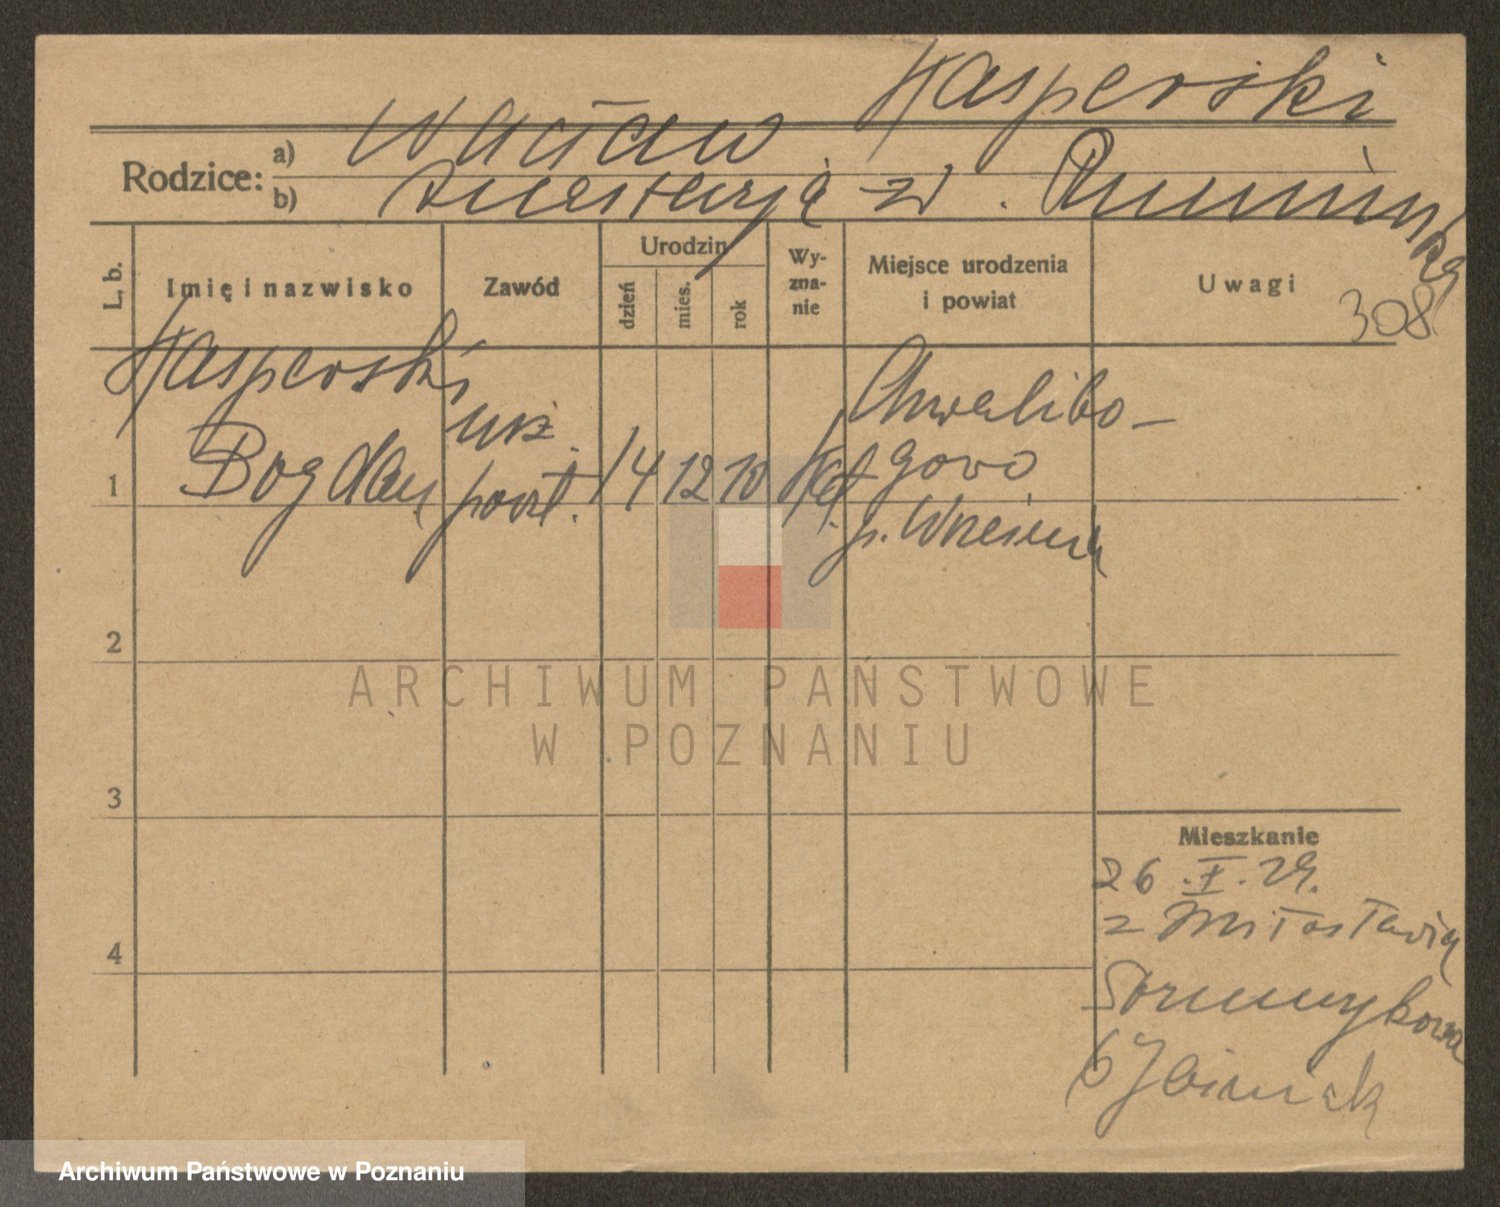 Kasperski
Rodzice:
a) Wacław
b) Anastazja zd.
L. b.
Imię i nazwisko
Zawód
Urodzin
dzień
mies.
rok
Wy-
zna-
nie
Miejsce urodzenia
i powiat
Uwagi
308
Kasperski
Bogdan
urz.
poczt.
14 12 10
Kat
Chwalibo-
gowo
p. Września
1
2
3
4
Mieszkanie
26.X.29.
z Miłosławia
Strumykowa
6
ARCHIWUM PAŃSTWOWE
W POZNANIU
Archiwum Państwowe w Poznaniu